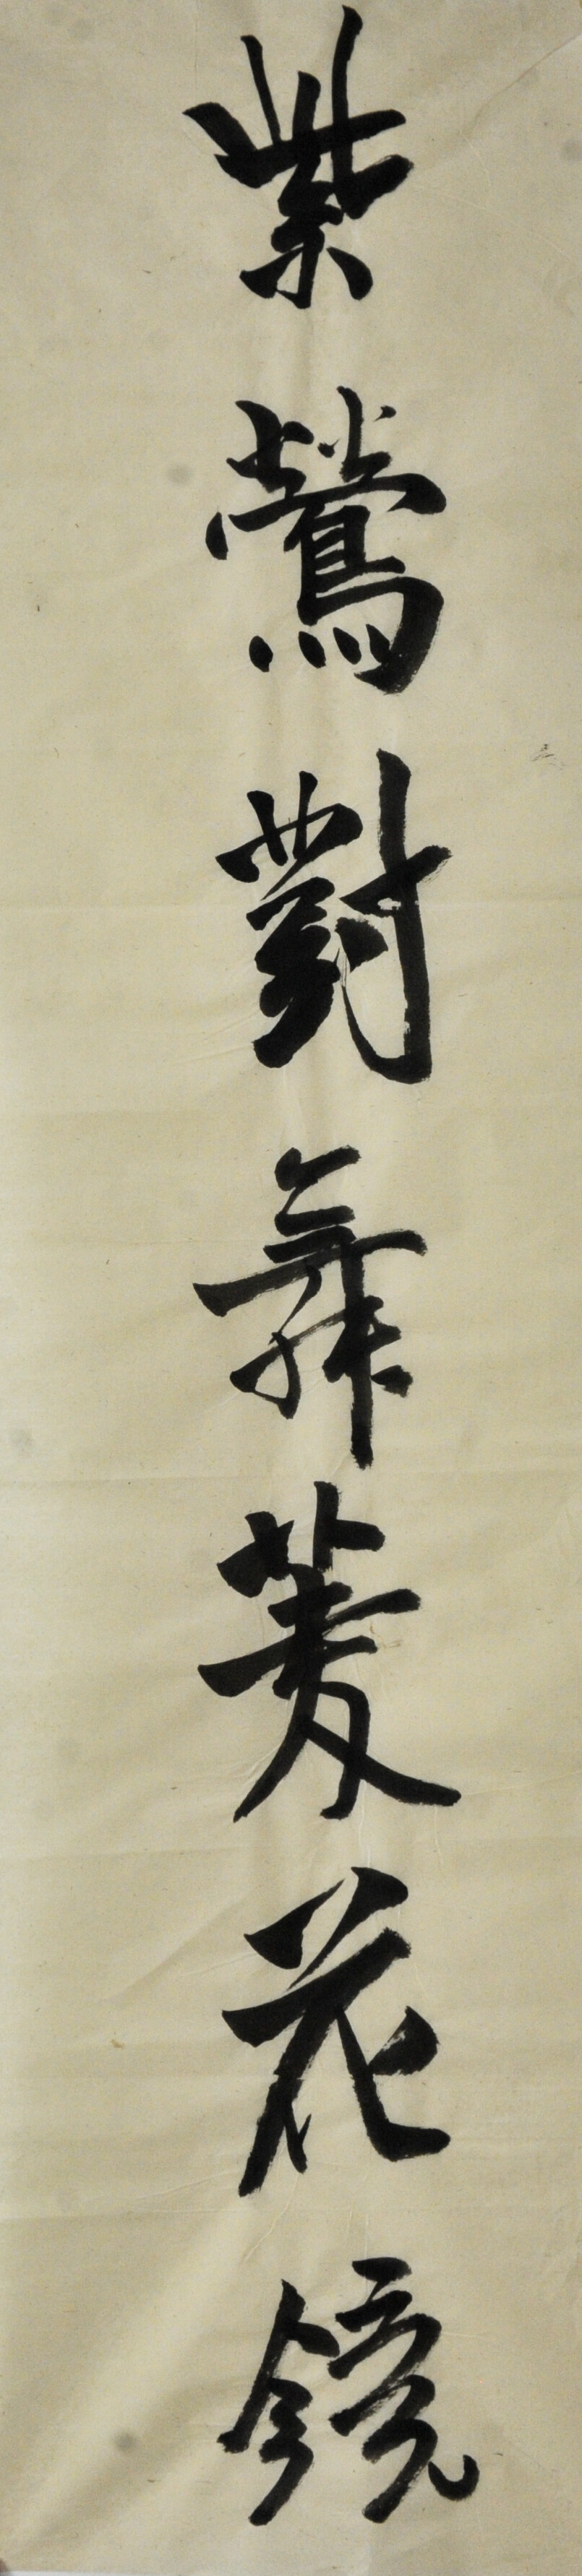 紫鶯對舞菱花鏡